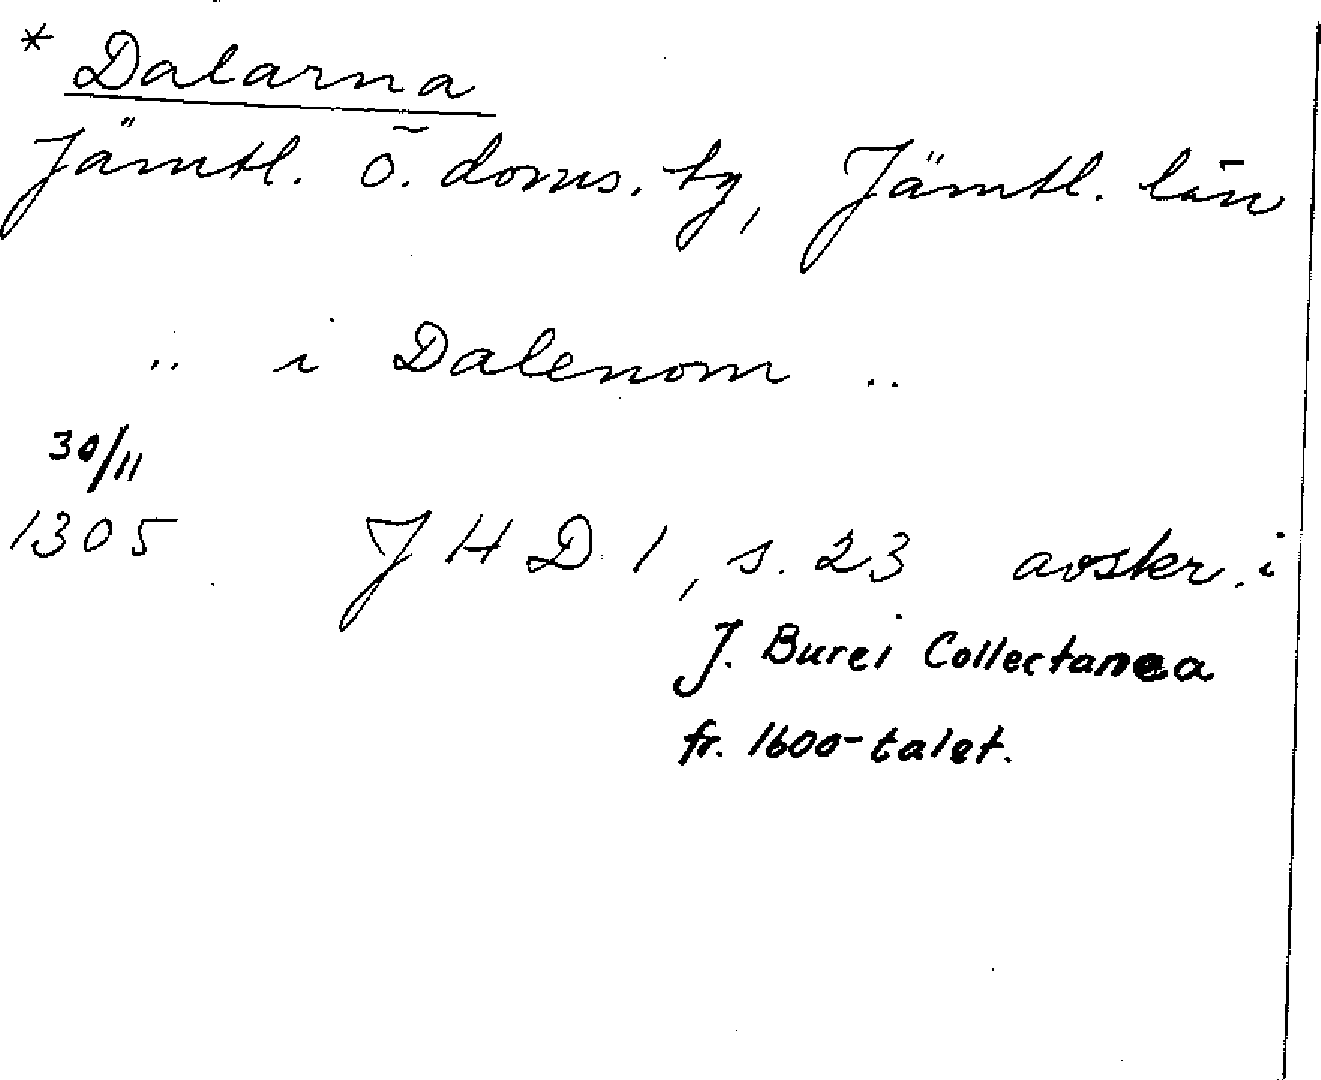 * Dalarna
Jämtl. ö. doms. tg, Jämtl. län
.. i Dalenom ..
30/11
1305 J H D 1, s. 23 avskr. i
J. Burei Collectanea
fr. 1600-talet.